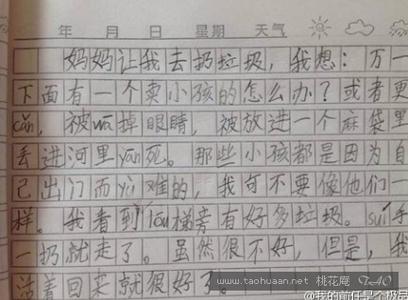 年 月 日 星期 天气
妈妈让我去扔垃圾，我想：万一
下面有一个卖小孩的怎么办？或者更
cǎn，被wā掉眼睛，被放进一个麻袋里
丢进河里yān死。那些小孩都是因为自
己出门而yù难的，我可不要像他们一
样。我看到lóu梯旁有好多垃圾。suí手
一扔就走了。虽然很不好，但是，我
活着回来就很好了。
www.taohuaan.net 桃花庵 TAO
@我的前任是个极品